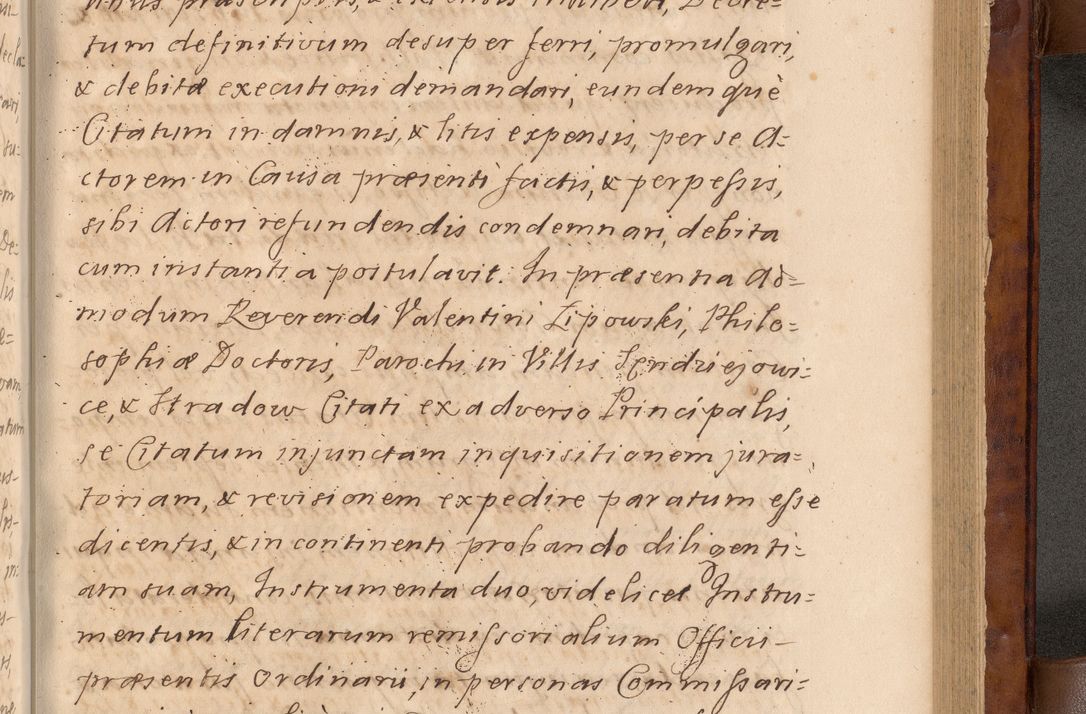 tum definitivum desuper ferri, promulgari,
& debitæ executioni demandari, eundemquè
Citatum in damnis, & litis expensis, per se A-
ctorem in Causa præsenti factis, & perpessis,
sibi Actori refundendis condemnari, debita
cum instantia postulavit. In præsentia Ad=
modum Reverendi Valentini Lipowski, Philo=
sophiæ Doctoris, Parochi in Villis Jendziejowi=
ce, & Stradow Citati ex adverso Principalis,
se Citatum injunctam inquisitionem jura=
toriam, & revisionem expedire paratum esse
dicentis, & in continenti probando diligenti-
am suam, Instrumenta duo, videlicet Instru=
mentum literarum remissorialium Officii
præsentis Ordinarii, in personas Commissari=